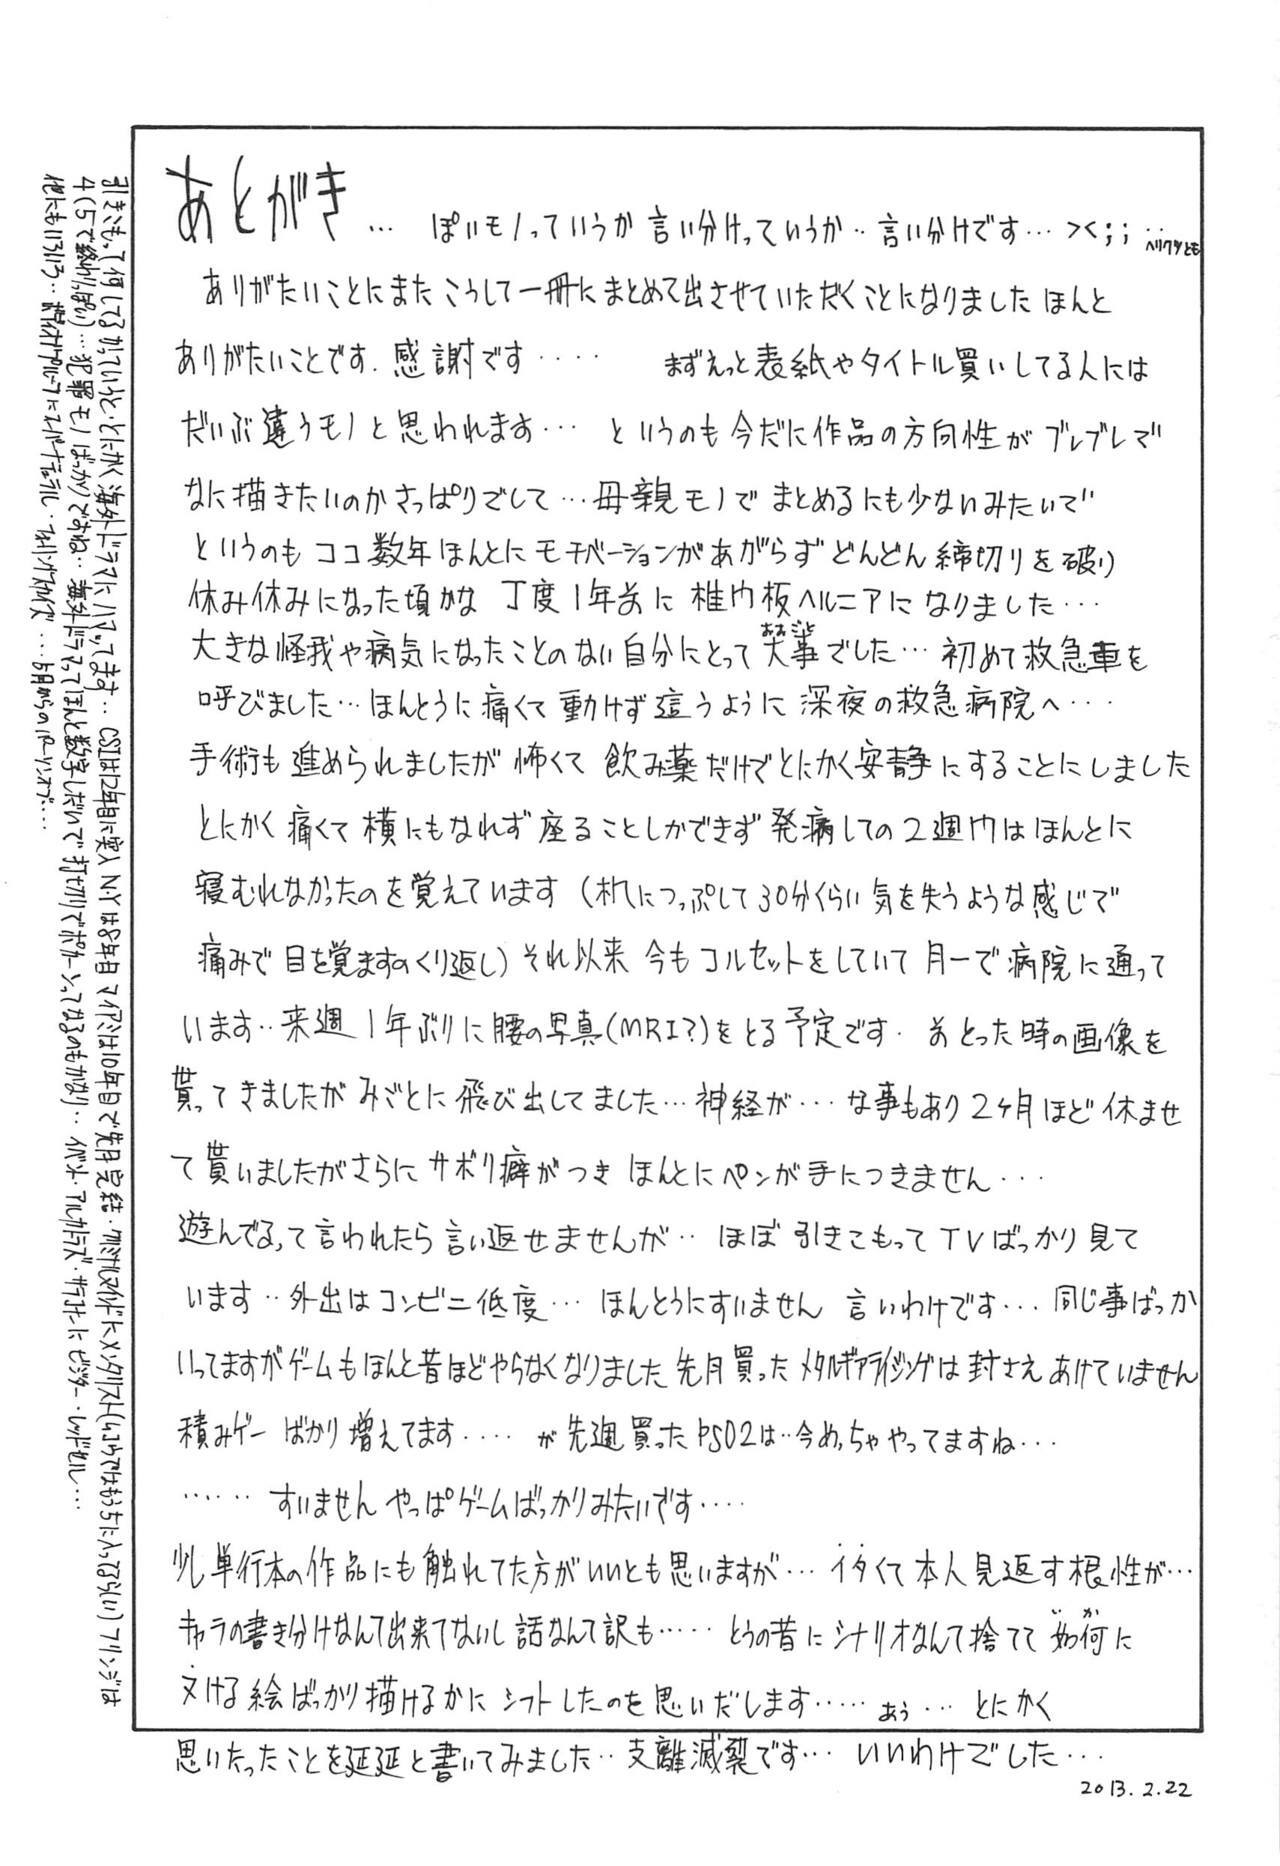 あとがき… ぽいモノっていうか 言い分けっていうか‥言い分けです… ＞＜;; ‥ヘリクツとも
ありがたいことにまた こうして一冊に まとめて出させていただくことになりました ほんと
ありがたいことです. 感謝です‥‥ まずえっと表紙やタイトル買いしてる人には
だいぶ違うモノと思われます… というのも今だに作品の方向性が ブレブレで
なに描きたいのかさっぱりでして…母親モノで まとめるにも少ないみたいで
というのも ココ数年ほんとに モチベーションがあがらず どんどん 締切りを破り
休み休みになった頃かな 丁度1年前に 椎間板ヘルニアになりました…
大きな怪我や病気になったことのない自分にとって大事(おおごと)でした… 初めて救急車を
呼びました…ほんとうに痛くて動けず這うように深夜の救急病院へ…
手術も進められましたが怖くて 飲み薬だけでとにかく安静にすることにしました
とにかく痛くて横にもなれず座ることしかできず発病しての2週間はほんとに
寝むれなかったのを覚えています(机につっぷして30分くらい気を失うような感じで
痛みで目を覚ますのくり返し)それ以来 今もコルセットをしていて月一で病院に通って
います‥来週1年ぶりに腰の写真(MRI?)をとる予定です. 前とった時の画像を
貰ってきましたが みごとに飛び出してました…神経が…な事もあり2ヶ月ほど休ませ
て貰いましたがさらに サボリ癖がつき ほんとにペンが手につきません…
遊んでるって言われたら言い返せませんが‥ ほぼ引きこもってTVばっかり見て
います‥外出はコンビニ低度… ほんとうにすいません 言いわけです…同じ事ばっか
いってますがゲームもほんと昔ほどやらなくなりました先月買ったメタルギアライジングは封さえあけていません
積みゲー ばかり増えてます‥‥ が先週買ったPSO2は‥今めっちゃやってますね…
…… すいませんやっぱゲームばっかりみたいです‥‥
少し単行本の作品にも触れてた方がいいとも思いますが…イタくて本人見返す根性が…
キャラの書き分けなんて出来てないし話なんて訳も…… とうの昔にシナリオなんて捨てて 如何(いか)に
ヌける絵ばっかり描けるかに シフトしたのを思いだします…… あぅ… とにかく
思いたったことを延延と書いてみました‥支離滅裂です… いいわけでした…
2013.2.22
引きこもって何してるかっていうと・とにかく海外ドラマにハマってます‥ CSIは12年目に突入 NYは8年目 マイアミは10年目で先月完結・クリミナルマインドにメンタリスト フリンジは
4(5で終わりっぽい)…犯罪モノばっかりですね‥海外ドラマってほんと数字しだいで打ち切りでポカーンってなるのもかなり‥ イベント・アルカトラズ・テラノバに ビジター・レッドセル…
他にもいろいろ‥ に スーパーナチュラル・フォーリングスカイズ…5月からのパーソンオブ…